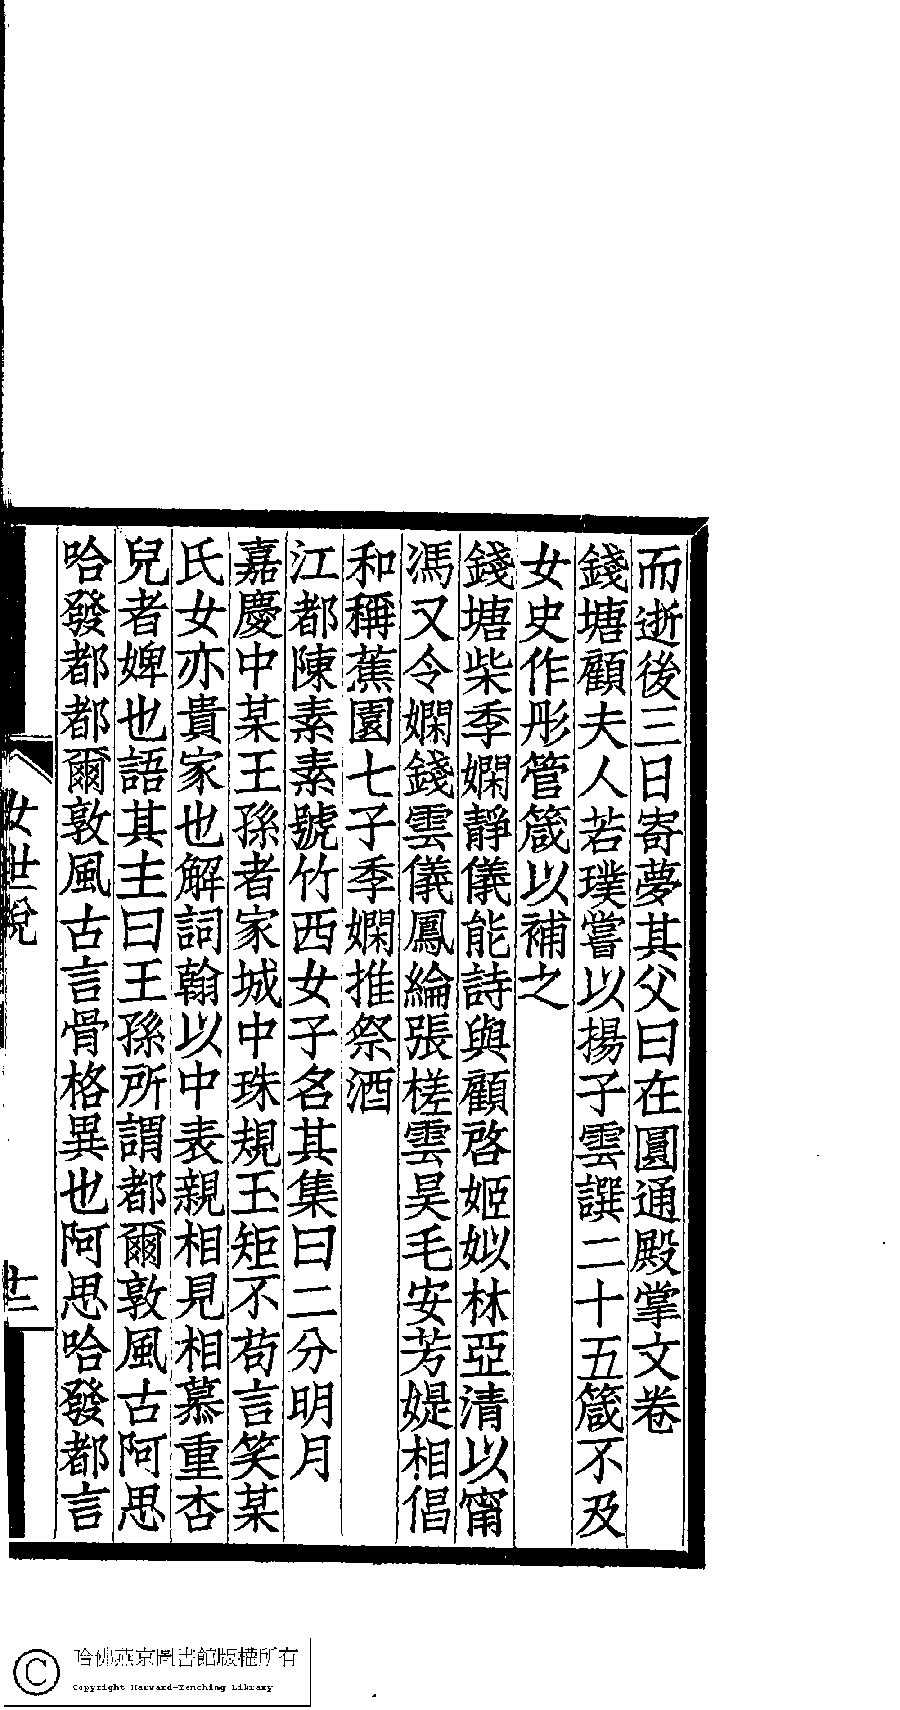 而逝後三日寄夢其父曰在圓通殿掌文卷
錢塘顧夫人若璞嘗以揚子雲譔二十五箴不及
女史作彤管箴以補之
錢塘柴季嫻靜儀能詩與顧啓姬姒林亞清以甯
馮又令嫻錢雲儀鳳綸張槎雲昊毛安芳媞相倡
和稱蕉園七子季嫻推祭酒
江都陳素素號竹西女子名其集曰二分明月
嘉慶中某王孫者家城中珠規玉矩不苟言笑某
氏女亦貴家也解詞翰以中表親相見相慕重杏
兒者婢也語其主曰王孫所謂都爾敦風古阿思
哈發都都爾敦風古言骨格異也阿思哈發都言
女世說
十二
哈佛燕京圖書館版權所有
Copyright Harvard-Yenching Library